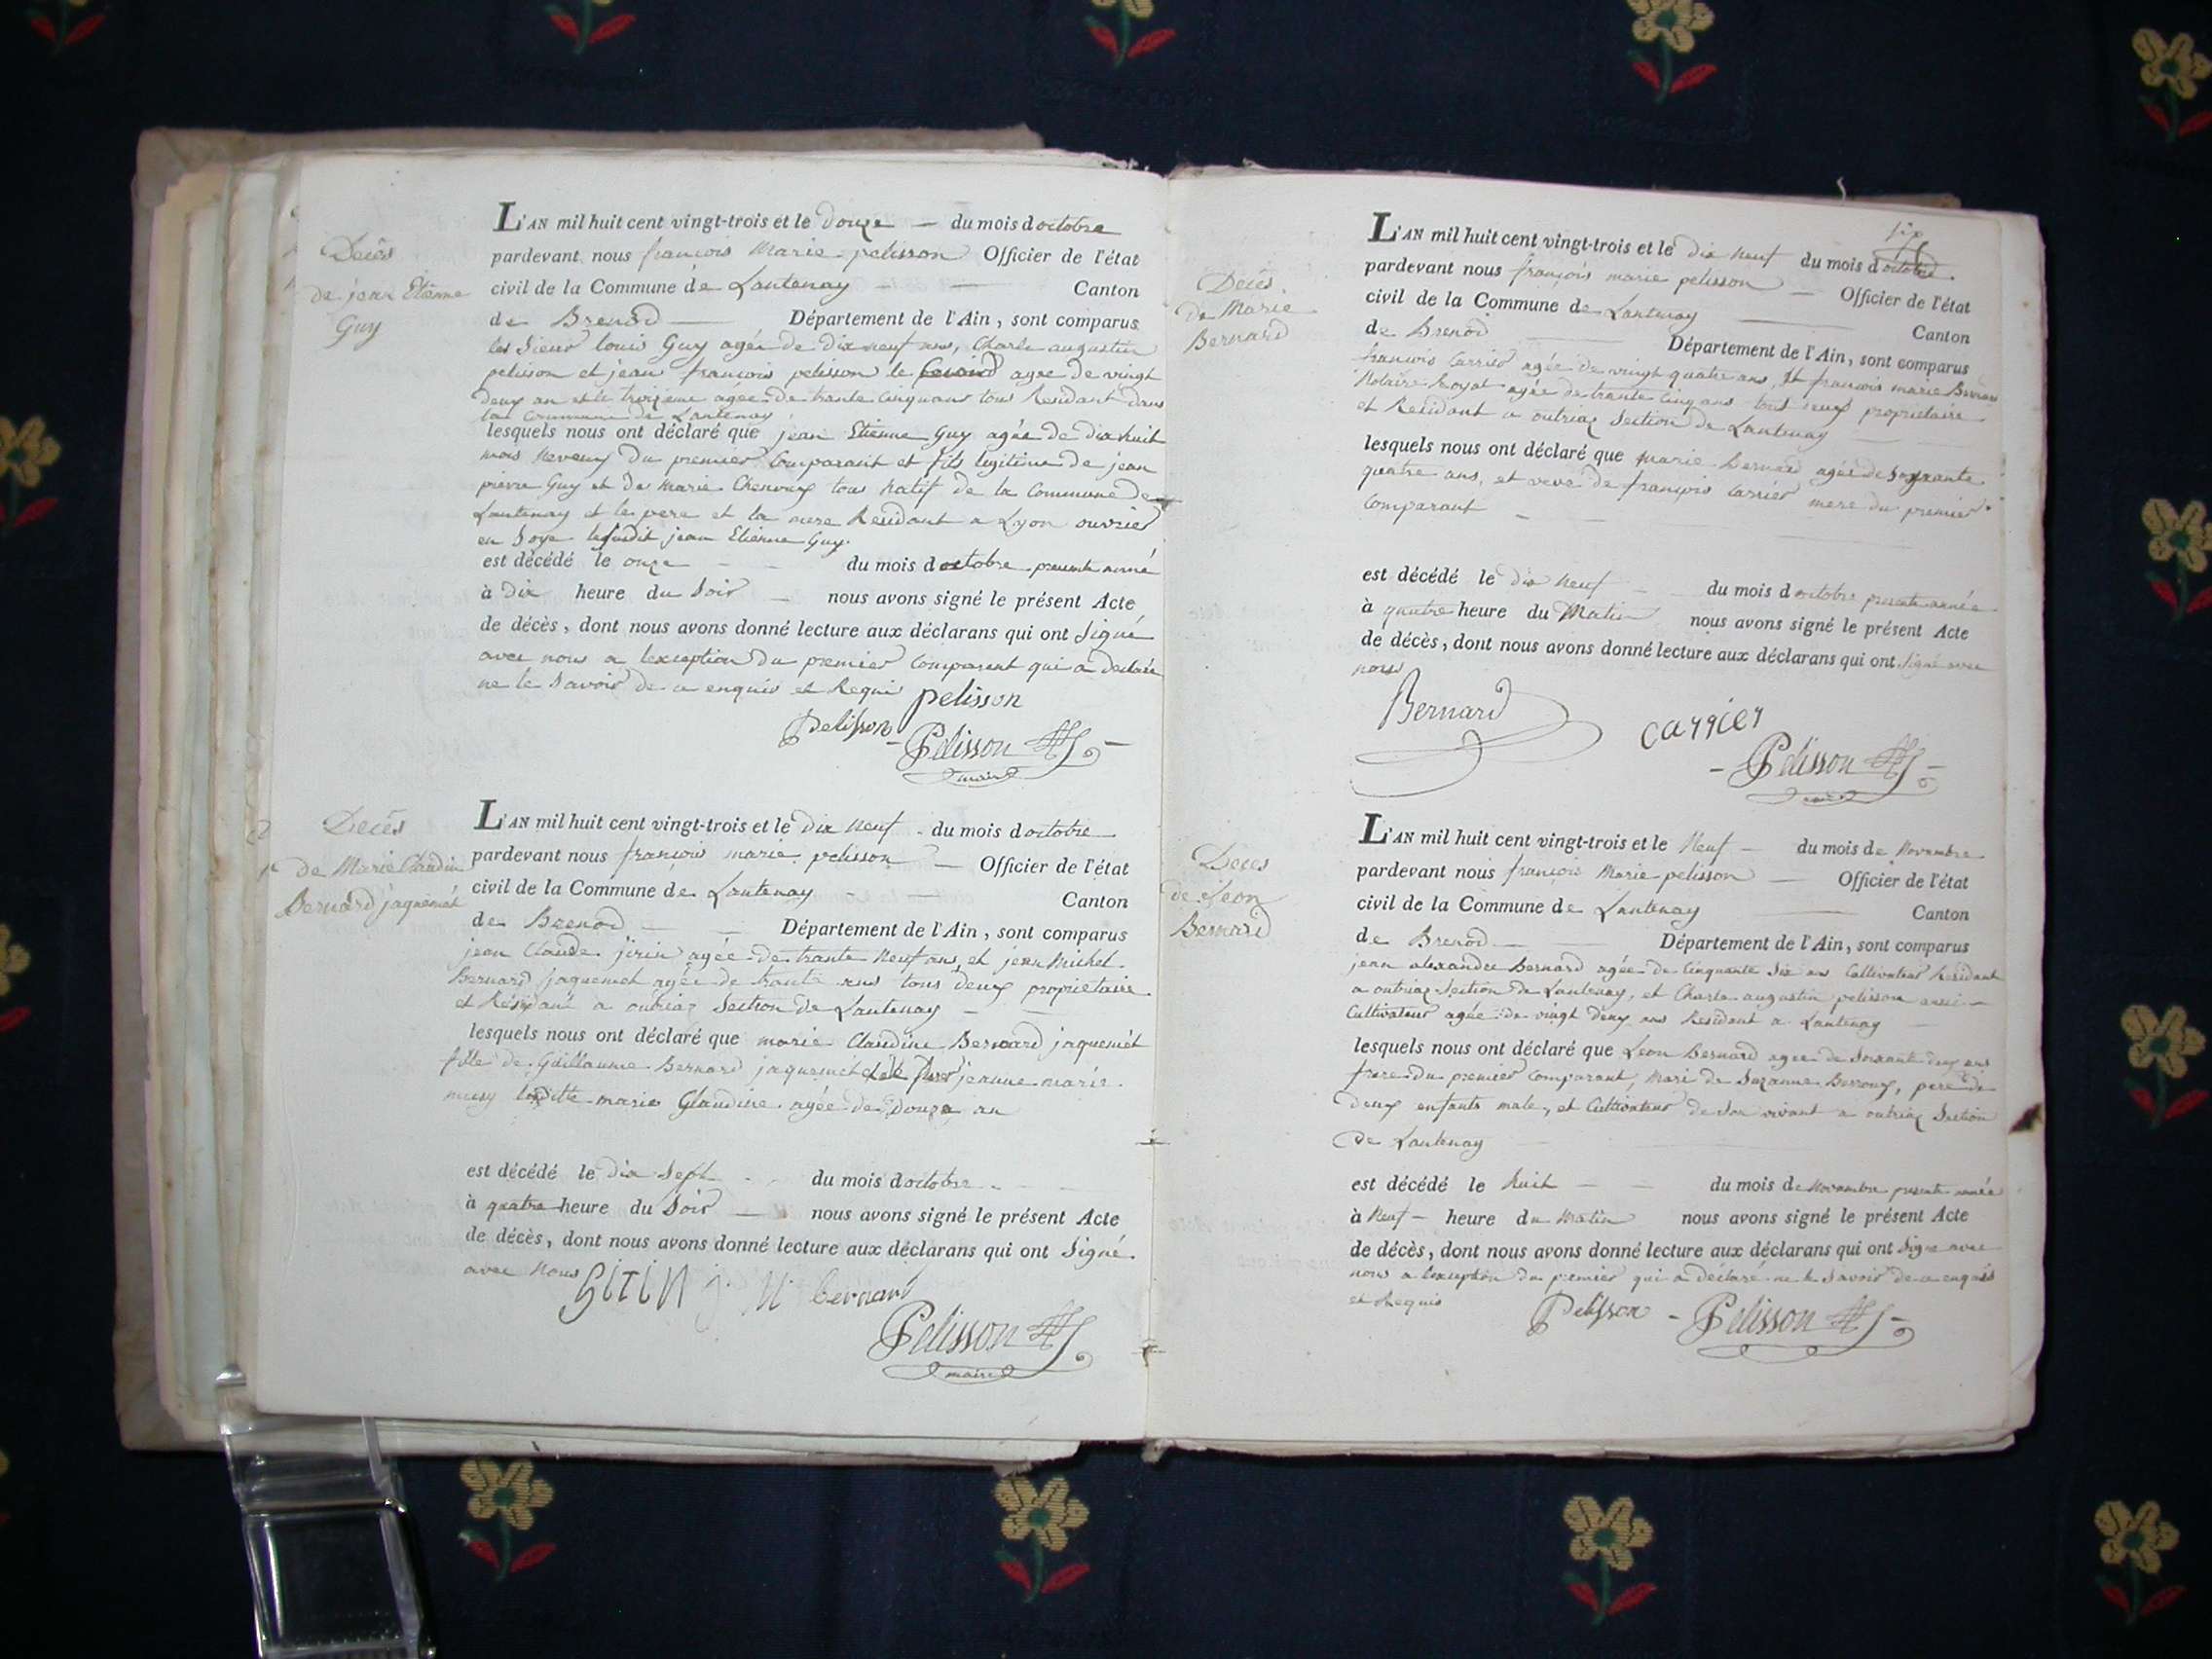 Decès
de jean Etienne
Guy
L'AN mil huit cent vingt-trois et le douze — du mois d octobre
pardevant nous françois Marie pelisson Officier de l'état
civil de la Commune de Lantenay — Canton
de Brenod — Département de l'Ain, sont comparus
les Sieur louis Guy agée de dix neuf ans, Charle augustin
pelisson et jean françois pelisson le second agée de vingt
deux an et le troizieme agée de trante cinq ans tous Residant dans
la commune de Lantenay
lesquels nous ont déclaré que jean Etienne Guy agée de dix huit
mois Neveux du premier Comparant et fils legitime de jean
pierre Guy et de Marie Chenvay tous Natif de la Commune de
Lantenay et le pere et la mere Residant a Lyon ouvrier
en Soye lesudit jean Etienne Guy.
est décédé le onze — du mois d octobre presente anné
à dix heure du Soir — nous avons signé le présent Acte
de décès, dont nous avons donné lecture aux déclarans qui ont Signé
avec nous a lexception du premier Comparent qui a declaré
ne le Savoir de ce enquis et Requi pelisson
Pelisson
- Pelisson -
maire
Decès
de Marie Claudine
Bernard jaquemét
L'AN mil huit cent vingt-trois et le Dix Neuf - du mois d octobre
pardevant nous françois marie pelisson — Officier de l'état
civil de la Commune de Lantenay — Canton
de Brenod — Département de l'Ain, sont comparus
jean Claude sirin agée de trante Neuf ans, et jean Michel
Bernard jaquemet agée de trante ans tous deux propriétaire
et Résidant a outriaz Section de Lantenay —
lesquels nous ont déclaré que marie Claudine Bernard jaquemét
fille de Guillaume Bernard jaquemét jeanne marie
laditte marie Glaudine agée de Douze an
est décédé le dix Sept du mois d octobre
à quatre heure du Soir — nous avons signé le présent Acte
de décès, dont nous avons donné lecture aux déclarans qui ont Signé
avec Nous SIRIN j. M bernard
Pelisson
maire
Decès
de Marie
Bernard
L'AN mil huit cent vingt-trois et le dix Neuf du mois d octobre
pardevant nous françois marie pelisson — Officier de l'état
civil de la Commune de Lantenay — Canton
de Brenod Département de l'Ain, sont comparus
françois Carrier agée de vingt quatre ans, Et françois marie Bernard
Notaire Royal agée de trante Cinq ans tous deux propriétaire
et Residant a outriaz Section de Lantenay
lesquels nous ont déclaré que Marie Bernard agée de Soixante
quatre ans, et veve de françois Carrier mere du premier
Comparant —
est décédé le dix Neuf — du mois d octobre presente année
à quatre heure du Matin nous avons signé le présent Acte
de décès, dont nous avons donné lecture aux déclarans qui ont Signé avec
nous
Bernard
carrier
- Pelisson -
L'AN mil huit cent vingt-trois et le Neuf — du mois de Novembre
Decès
de Léon
Bernard
pardevant nous françois Marie pelisson — Officier de l'état
civil de la Commune de Lantenay — Canton
de Brenod — Département de l'Ain, sont comparus
jean alexandre Bernard agée de Cinquante Six ans Cultivateur Residant
a outriaz Section de Lantenay, et Charle augustin pelisson aussi
Cultivateur agée de vingt Deux ans Residant a Lantenay
lesquels nous ont déclaré que Leon Bernard agée de Soixante deux ans
frere du premier Comparant, Mari de Suzanne Burroux, pere de
Deux enfants male, et Cultivateur de Son vivant a outriaz Section
de Lantenay
est décédé le huit — du mois de Novembre presente année
à Neuf — heure du Matin nous avons signé le présent Acte
de décès, dont nous avons donné lecture aux déclarans qui ont Signé avec
nous a lexception du premier qui a déclaré ne le Savoir de ce enquis
et Requis Pelisson - Pelisson -